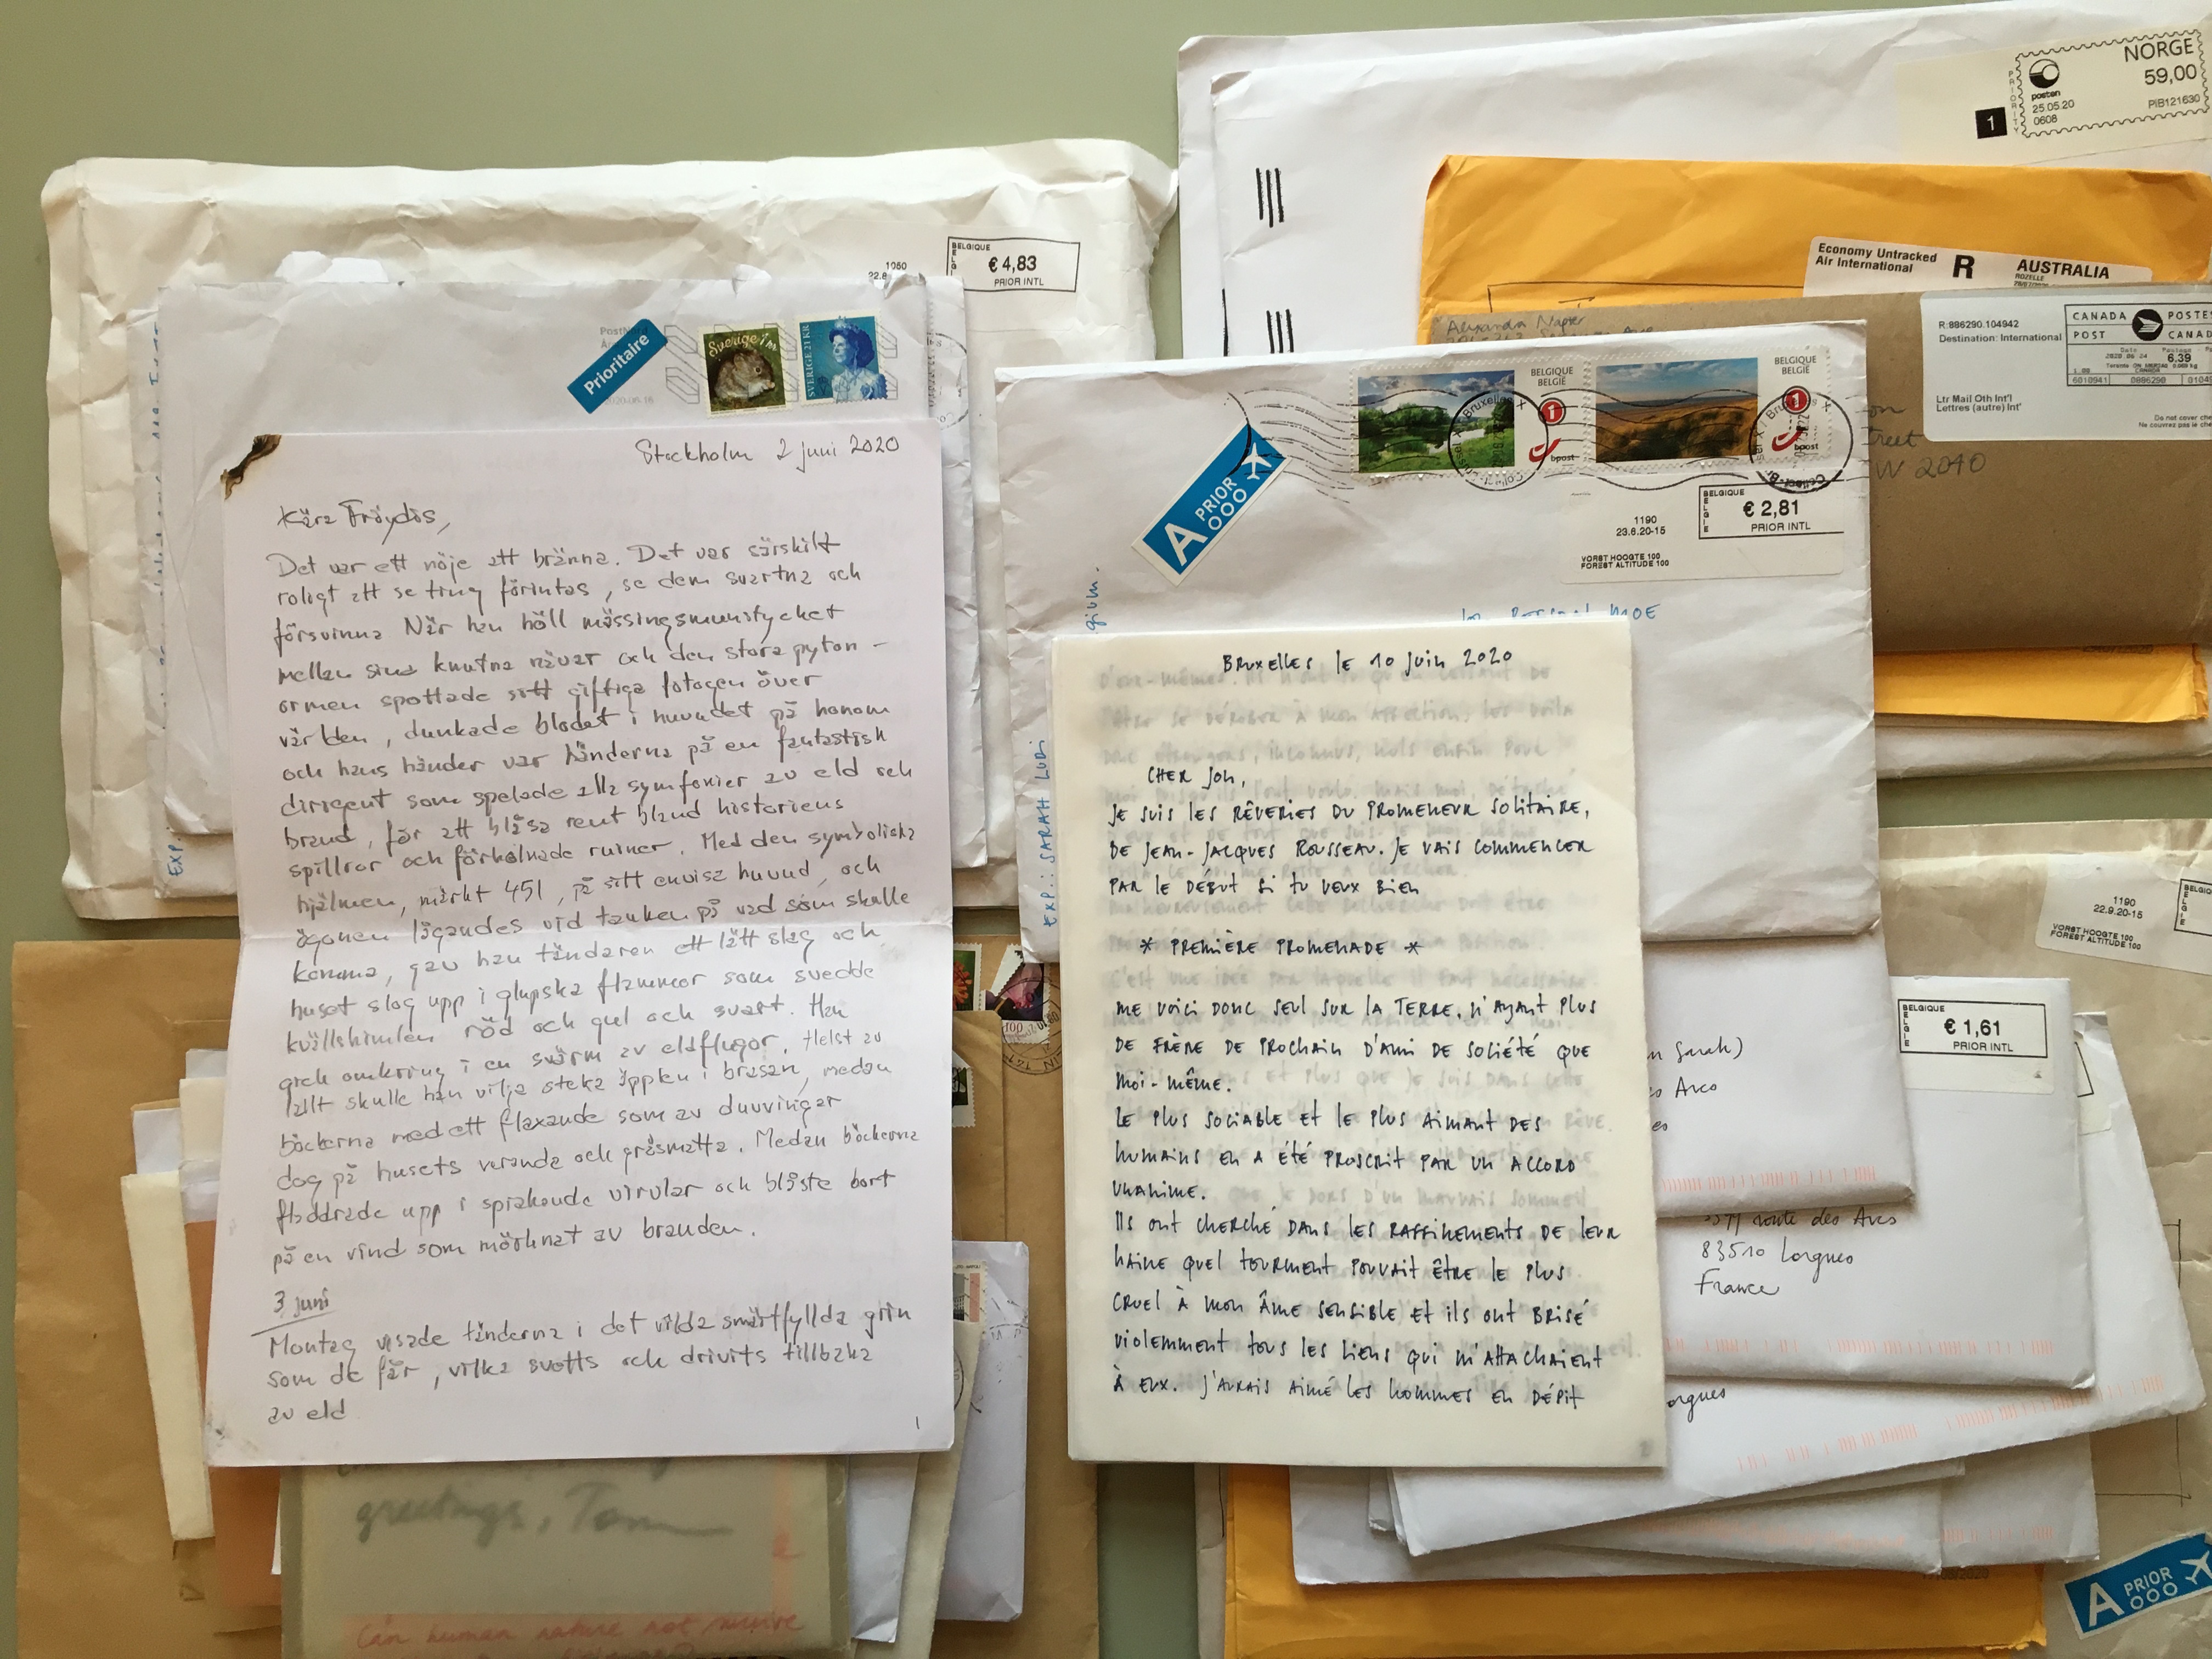 NORGE
59,00
PRIORITY
posten
25.05.20
0608
PIB121630
1
Economy Untracked
Air International
R
AUSTRALIA
ROZELLE
BELGIQUE
BELGIE
€ 4,83
PRIOR INTL
1050
Alexandra Napier
R:886290.104942
Destination: International
CANADA POSTES
POST CANAD
6.39
6010941 0886290
Ltr Mail Oth Int'l
Lettres (autre) Int'
Do not cover
Ne couvrez pas le
W 2040
Prioritaire
Sverige
SVERIGE 21 KR
BELGIQUE
BELGIË
1
bpost
BELGIQUE
BELGIË
1
bpost
A PRIOR
1190
23.6.20-15
VORST HOOGTE 100
FOREST ALTITUDE 100
BELGIQUE
BELGIE
€ 2,81
PRIOR INTL
EXP.: SARAH LUDI
EXP.
Stockholm 2 juni 2020
Kära Frøydis,
Det var ett nöje att bränna. Det var särskilt
roligt att se ting förintas, se dem svartna och
försvinna När han höll mässingsmunstycket
mellan sina knutna nävar och den stora pyton-
ormen spottade sitt giftiga fotogen över
världen, dunkade blodet i huvudet på honom
och hans händer var händerna på en fantastisk
dirigent som spelade alla symfonier av eld och
brand, för att blåsa rent bland historiens
spillror och förkolnade ruiner. Med den symboliska
hjälmen, märkt 451, på sitt envisa huvud, och
ögonen lågandes vid tanken på vad som skulle
komma, gav han tändaren ett lätt slag och
huset slog upp i glupska flammor som svedde
kvällshimlen röd och gul och svart. Han
gick omkring i en svärm av eldflugor. Helst av
allt skulle han vilja steka äpplen i brasan, medan
böckerna med ett flaxande som av duvvingar
dog på husets veranda och gräsmatta. Medan böckerna
fladdrade upp i sprakande virvlar och blåste bort
på en vind som mörknat av branden.
3 juni
Montag visade tänderna i det vilda smärtfyllda grin
som de får, vilka svetts och drivits tillbaka
av eld
1
BRUXELLES LE 10 JUIN 2020
CHER JON,
JE SUIS LES RÊVERIES DU PROMENEUR SOLITAIRE,
DE JEAN-JACQUES ROUSSEAU. JE VAIS COMMENCER
PAR LE DÉBUT SI TU VEUX BIEN
* PREMIÈRE PROMENADE *
ME VOICI DONC SEUL SUR LA TERRE, N'AYANT PLUS
DE FRÈRE DE PROCHAIN D'AMI DE SOCIÉTÉ QUE
MOI-MÊME.
LE PLUS SOCIABLE ET LE PLUS AIMANT DES
HUMAINS EN A ÉTÉ PROSCRIT PAR UN ACCORD
UNANIME.
ILS ONT CHERCHÉ DANS LES RAFFINEMENTS DE LEUR
HAINE QUEL TOURMENT POUVAIT ÊTRE LE PLUS
CRUEL À MON ÂME SENSIBLE ET ILS ONT BRISÉ
VIOLEMMENT TOUS LES LIENS QUI M'ATTACHAIENT
À EUX. J'AURAIS AIMÉ LES HOMMES EN DÉPIT
1190
22.9.20-15
VORST HOOGTE 100
FOREST ALTITUDE 100
BELGIQUE
BELGIE
€ 1,61
PRIOR INTL
Sarah)
Arcs
route des Arcs
83510 Lorgues
France
orgues
greetings, Tom
Can human nature not survive
A PRIOR